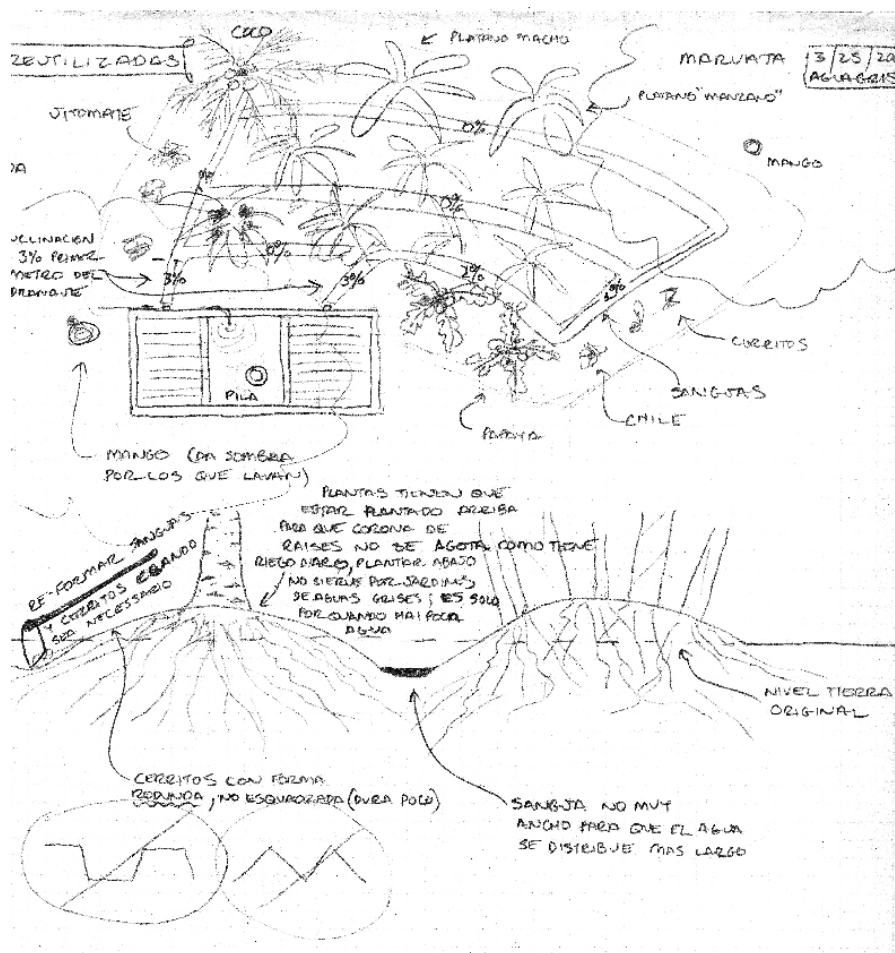 REUTILIZADAS
COCO
PLATANO MACHO
MARUATA
3/25/20
AGUAGRIS
JITOMATE
PLATANO "MANZANO"
0%
MANGO
DA
0%
CLINACION
3% PRIMER
METRO DEL
DRANQUE
0%
3%
3%
2%
PILA
CERRITOS
SANGJAS
CHILE
PAPAYA
MANGO (DA SOMBRA
POR LOS QUE LAVAN)
PLANTAS TIENEN QUE
ESTAR PLANTADO ARRIBA
PARA QUE CORONA DE
RAISES NO SE AGOTA. COMO TIENE
PLANTAR ABAJO
NO SIERVE POR JARDINES
DE AGUAS GRISES; ES SOLO
POR QUANDO HAI POCA
AGUA
RE-FORMAR SANGJAS
Y CERRITOS CUANDO
SEA NECESSARIO
NIVEL TIERRA
ORIGINAL
CERRITOS CON FORMA
REDUNDA, NO ESQUADRADA (DURA POCO)
SANGJA NO MUY
ANCHO PARA QUE EL AGUA
SE DISTRIBUE MAS LARGO